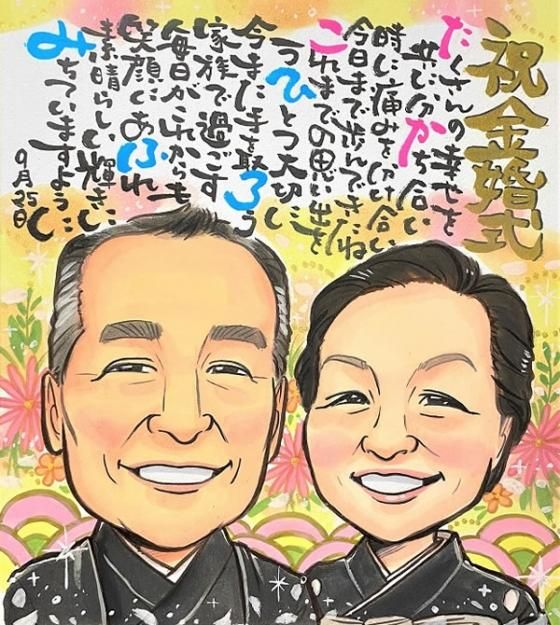 祝金婚式
たくさんの幸せを
共に分かち合い
時に痛みを分け合い
今日まで歩んできたね
これまでの思い出を
一つひとつ大切に
今また手を取ろう
家族で過ごす
毎日がこれからも
笑顔にあふれ
素晴らしい輝きに
みちていますように
9月25日